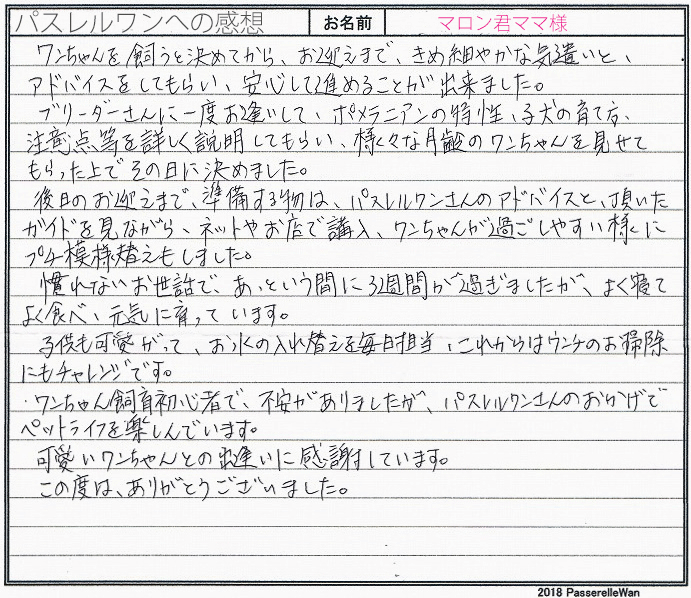 パスレルワンへの感想 お名前 マロン君ママ様
ワンちゃんを飼うと決めてから、お迎えまで、きめ細やかな気遣いと、
アドバイスをしてもらい、安心して進めることが出来ました。
ブリーダーさんに一度お逢いして、ポメラニアンの特性、子犬の育て方、
注意点等を詳しく説明してもらい、様々な月齢のワンちゃんを見せて
もらった上でその日に決めました。
後日のお迎えまで、準備する物は、パスレルワンさんのアドバイスと、頂いた
ガイドを見ながら、ネットやお店で講入、ワンちゃんが過ごしやすい様に
プチ模様替えもしました。
慣れないお世話で、あっという間に3週間が過ぎましたが、よく寝て
よく食べ、元気に育っています。
子供も可愛がって、お水の入れ替えを毎日担当、これからはウンチのお掃除
にもチャレンジです。
ワンちゃん飼育初心者で、不安がありましたが、パスレルワンさんのおかげで
ペットライフを楽しんでいます。
可愛いワンちゃんとの出逢いに感謝しています。
この度は、ありがとうございました。
2018 PasserelleWan